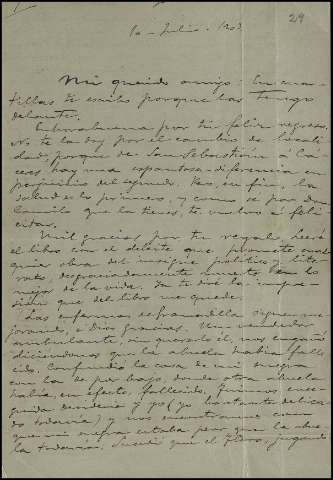 29
10 - Julio - 1903
Mi querido amigo: En cuar-
tillas te escribo porque las tengo
delante.
Enhorabuena por tu feliz regreso.
No te la doy por el cambio de locali-
dad, porque de San Sebastián a Các-
ceres, hay una espantosa diferencia en
perjuicio del segundo. Pero, en fin, la
salud es lo primero, y como se por Don
Camilo que la tienes, te vuelvo a feli-
citar.
Mil gracias por tu regalo. Leeré
el libro con el deleite que promete cual-
quier obra del insigne político y lite-
rato, desgraciadamente muerto en lo
mejor de la vida. Ya te diré la impre-
sión que del libro me quede.
Las enfermas de familia siguen me-
jorando, a Dios gracias. Un vendedor
ambulante, sin quererlo él, nos engañó
diciéndonos que la abuela había falle-
cido. Confundió la casa de mi suegra
con la de por bajo donde otra abuela
había, en efecto, fallecido, fuimos ense-
guida
y yo (yo bastante delica-
do todavía) y nos encontramos con
que mi suegra estaba peor que la abue-
la todavía. Sucedió que el
jugando